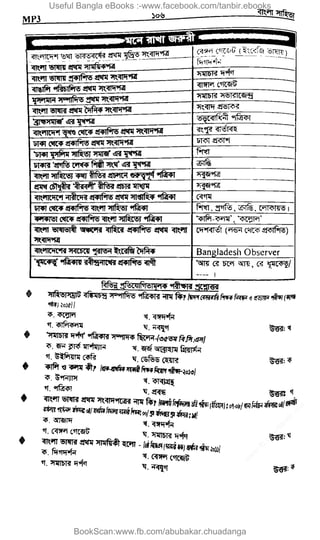 Useful Bangla eBooks :-www.facebook.com/tanbir.ebooks
MP3 ১০৬ বাংলা সাহিত্য
মনে রাখা জরুরী
বাংলাদেশ তথা ভারতবর্ষের প্রথম মুদ্রিত সংবাদপত্র বেঙ্গল গেজেট (ইংরেজি ভাষায়)
বাংলা ভাষায় প্রথম সাময়িকপত্র দিগদর্শন
বাংলা ভাষায় প্রকাশিত প্রথম সংবাদপত্র সমাচার দর্পণ
বাঙালি পরিচালিত প্রথম সংবাদপত্র বাঙ্গাল গেজেট
মুসলমান সম্পাদিত প্রথম সংবাদপত্র সমাচার সভারাজেন্দ্র
বাংলা ভাষায় প্রথম দৈনিক সংবাদপত্র সংবাদ প্রভাকর
'ব্রাহ্মসমাজ' এর মুখপত্র তত্ত্ববোধিনী পত্রিকা
বাংলাদেশ ভূখণ্ড থেকে প্রকাশিত প্রথম সংবাদপত্র রংপুর বার্তাবহ
ঢাকা থেকে প্রকাশিত প্রথম সংবাদপত্র ঢাকা প্রকাশ
'ঢাকা মুসলিম সাহিত্য সমাজ' এর মুখপত্র শিখা
ঢাকার 'প্রগতি লেখক শিল্পী সংঘ' এর মুখপত্র ক্রান্তি
বাংলা সাহিত্যে কথ্য রীতির প্রচলনে গুরুত্বপূর্ণ পত্রিকা সবুজপত্র
প্রমথ চৌধুরীর 'বীরবলী' রীতির প্রচার মাধ্যম সবুজপত্র
বাংলাদেশে নারীদের প্রকাশিত প্রথম সাপ্তাহিক পত্রিকা বেগম
ঢাকা থেকে প্রকাশিত বাংলা সাহিত্য পত্রিকা শিখা, প্রগতি, ক্রান্তি, লোকায়ত।
কলকাতা থেকে প্রকাশিত বাংলা সাহিত্য পত্রিকা 'কালি-কলম', 'কল্লোল'
বাংলা ভাষাভাষী অঞ্চলের বাহিরে প্রকাশিত প্রথম বাংলা দেশবার্তা (লন্ডন থেকে প্রকাশিত)
সংবাদপত্র
বাংলাদেশের সবচেয়ে পুরাতন ইংরেজি দৈনিক Bangladesh Observer
'ধূমকেতু' পত্রিকায় রবীন্দ্রনাথের প্রকাশিত বাণী 'আয় রে চলে আয়, রে ধূমকেতু/
---- ।
বিভিন্ন প্রতিযোগিতামূলক পরীক্ষার প্রশ্নোত্তর
♦ সাহিত্যসম্রাট বঙ্কিমচন্দ্র সম্পাদিত পত্রিকার নাম কি?
ক. কল্লোল খ. বঙ্গদর্শন
গ. কালিকলম ঘ. নবযুগ উত্তর: খ
♦ 'সমাচার দর্পণ' পত্রিকার সম্পাদক ছিলেন-
ক. জন ক্লার্ক মার্শম্যান খ. জর্জ আব্রাহাম গ্রিয়ার্সন
গ. উইলিয়াম কেরি ঘ. ডেভিড হেয়ার উত্তর: ক
♦ কালি ও কলম কী?
ক. উপন্যাস খ. কাব্যগ্রন্থ
গ. পত্রিকা ঘ. প্রবন্ধ উত্তর: গ
♦ বাংলা ভাষায় প্রথম সংবাদপত্রের নাম কি?
ক. আজাদ খ. বঙ্গদর্শন
গ. বেঙ্গল গেজেট ঘ. সমাচার দর্পণ উত্তর: ঘ
♦ বাংলা ভাষায় প্রথম সাময়িকী হলো -
ক. দিগদর্শন খ. বেঙ্গল গেজেট
গ. সমাচার দর্পণ ঘ. নবযুগ উত্তর: ক
BookScan:www.fb.com/abubakar.chuadanga